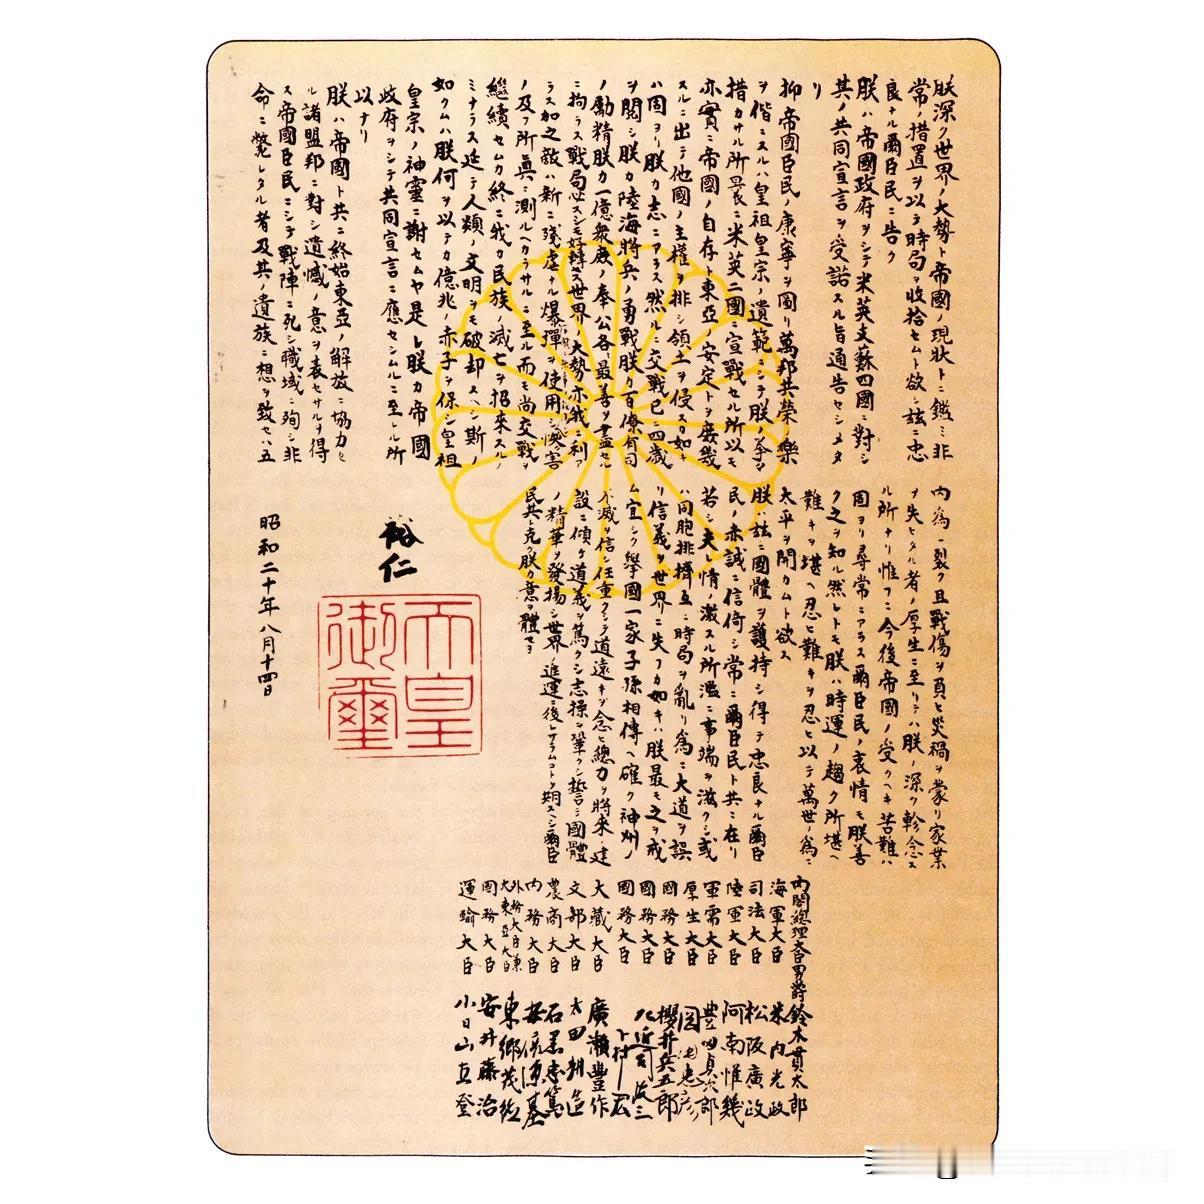 朕深ク世界ノ大勢ト帝國ノ現狀トニ鑑ミ非
常ノ措置ヲ以テ時局ヲ收拾セムト欲シ茲ニ忠
良ナル爾臣民ニ告ク
朕ハ帝國政府ヲシテ米英支蘇四國ニ對シ
其ノ共同宣言ヲ受諾スル旨通告セシメタ
リ
抑帝國臣民ノ康寧ヲ圖リ萬邦共榮ノ樂
ヲ偕ニスルハ皇祖皇宗ノ遺範ニシテ朕ノ拳々
措カサル所曩ニ米英二國ニ宣戰セル所以モ
亦實ニ帝國ノ自存ト東亞ノ安定トヲ庶幾
スルニ出テ他國ノ主權ヲ排シ領土ヲ侵スカ如キ
ハ固ヨリ朕カ志ニアラス然ルニ交戰已ニ四歲
ヲ閱シ朕カ陸海將兵ノ勇戰朕カ百僚有司
ノ勵精朕カ一億衆庶ノ奉公各最善ヲ盡セル
ニ拘ラス戰局必スシモ好轉セス世界ノ大勢亦我ニ利ア
ラス加之敵ハ新ニ殘虐ナル爆彈ヲ使用シテ
慘害
ノ及フ所眞ニ測ルヘカラサルニ至ル而モ尚交戰ヲ
繼續セムカ終ニ我カ民族ノ滅亡ヲ招來スルノ
ミナラス延テ人類ノ文明ヲモ破却スヘシ斯ノ
如クムハ朕何ヲ以テカ億兆ノ赤子ヲ保シ皇祖
皇宗ノ神靈ニ謝セムヤ是レ朕カ帝國
政府ヲシテ共同宣言ニ應セシムルニ至レル所
以ナリ
朕ハ帝國ト共ニ終始東亞ノ解放ニ協力セ
ル諸盟邦ニ對シ遺憾ノ意ヲ表セサルヲ得
ス帝國臣民ニシテ戰陣ニ死シ職域ニ殉シ非
命ニ斃レタル者及其ノ遺族ニ想ヲ致セハ五
內爲ニ裂ク且戰傷ヲ負ヒ災禍ヲ蒙リ家業
ヲ失ヒタル者ノ厚生ニ至リテハ朕ノ深ク軫念ス
ル所ナリ惟フニ今後帝國ノ受クヘキ苦難ハ
固ヨリ尋常ニアラス爾臣民ノ衷情モ朕善
ク之ヲ知ル然レトモ朕ハ時運ノ趨ク所堪ヘ
難キヲ堪ヘ忍ヒ難キヲ忍ヒ以テ萬世ノ爲ニ
太平ヲ開カムト欲ス
朕ハ茲ニ國體ヲ護持シ得テ忠良ナル爾臣
民ノ赤誠ニ信倚シ常ニ爾臣民ト共ニ在リ
若シ夫レ情ノ激スル所濫ニ事端ヲ滋クシ或
ハ同胞排擠互ニ時局ヲ亂リ爲ニ大道ヲ誤
リ信義ヲ世界ニ失フカ如キハ朕最モ之ヲ戒
ム宜シク擧國一家子孫相傳ヘ確ク神州ノ
不滅ヲ信シ任重クシテ道遠キヲ念ヒ總力ヲ將來ノ建
設ニ傾ケ道義ヲ篤クシ志操ヲ鞏クシ誓テ國體
ノ精華ヲ發揚シ世界ノ進運ニ後レサラムコトヲ期スヘシ爾臣
民其レ克ク朕カ意ヲ體セヨ
裕仁
天皇
御璽
昭和二十年八月十四日
內閣總理大臣男爵 鈴木貫太郎
海軍大臣 米內光政
司法大臣 松阪廣政
陸軍大臣 阿南惟幾
軍需大臣 豐田貞次郎
厚生大臣 岡田忠彥
國務大臣 櫻井兵五郎
國務大臣 左近司政三
國務大臣 下村宏
大藏大臣 廣瀨豐作
文部大臣 太田耕造
農商大臣 石黑忠篤
內務大臣 安倍源基
外務大臣兼
大東亞大臣 東鄉茂德
國務大臣 安井藤治
運輸大臣 小日山直登